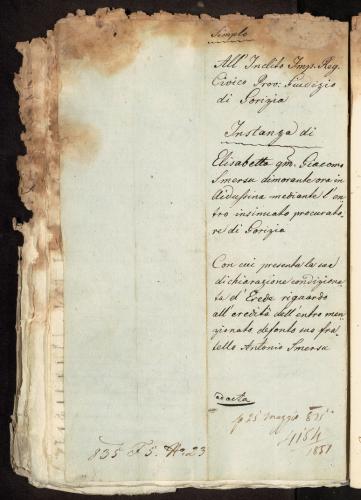 Simplo
All' Inclito Imp. Reg.
Civico Prov. Giudizio
di Gorizia
Instanza di
Elisabetta qm. Giacomo
Smersu dimorante ora in
Aidussina mediante l'en-
tro insinuato procurato-
re di Gorizia
Con cui presenta la sue
dichiarazione condiziona
ta d'Erede riguardo
all'eredità dell'entro men
zionato defonto suo fra
tello Antonio Smersu
ad acta
25 Maggio 835
4154
1851
835 F 5. No 23